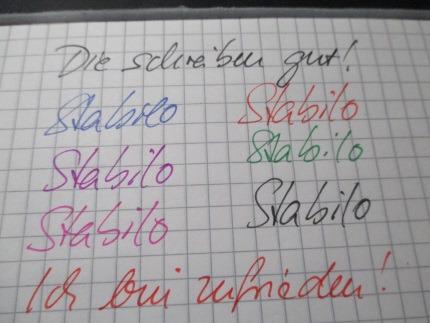 Die schreiben gut!
Stabilo Stabilo
Stabilo Stabilo
Stabilo Stabilo
Ich bin zufrieden!